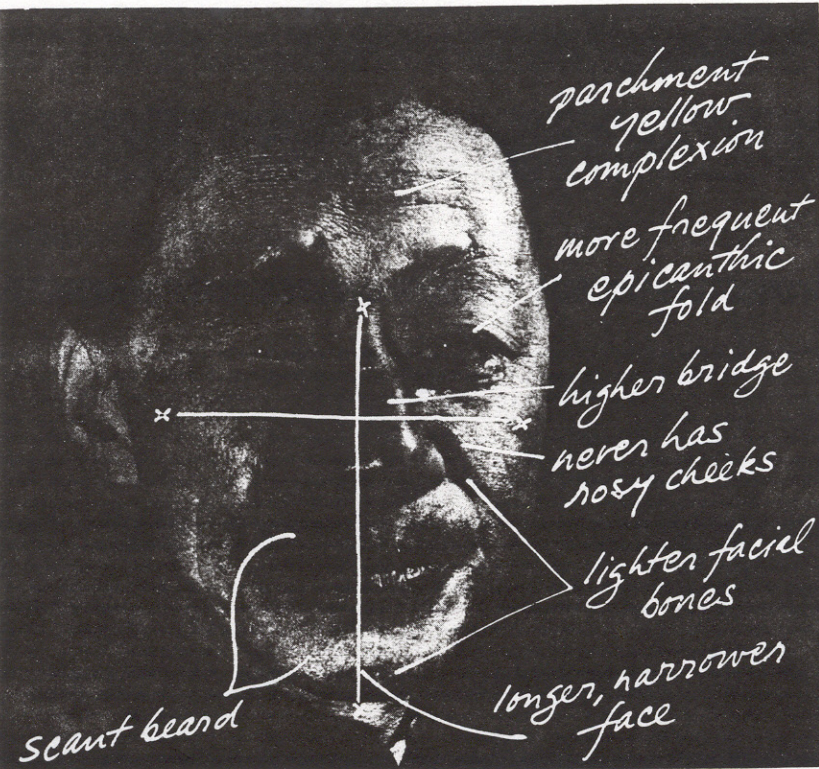 parchment
yellow
complexion
more frequent
epicanthic
fold
higher bridge
never has
rosy cheeks
lighter facial
bones
longer, narrower
face
scant beard